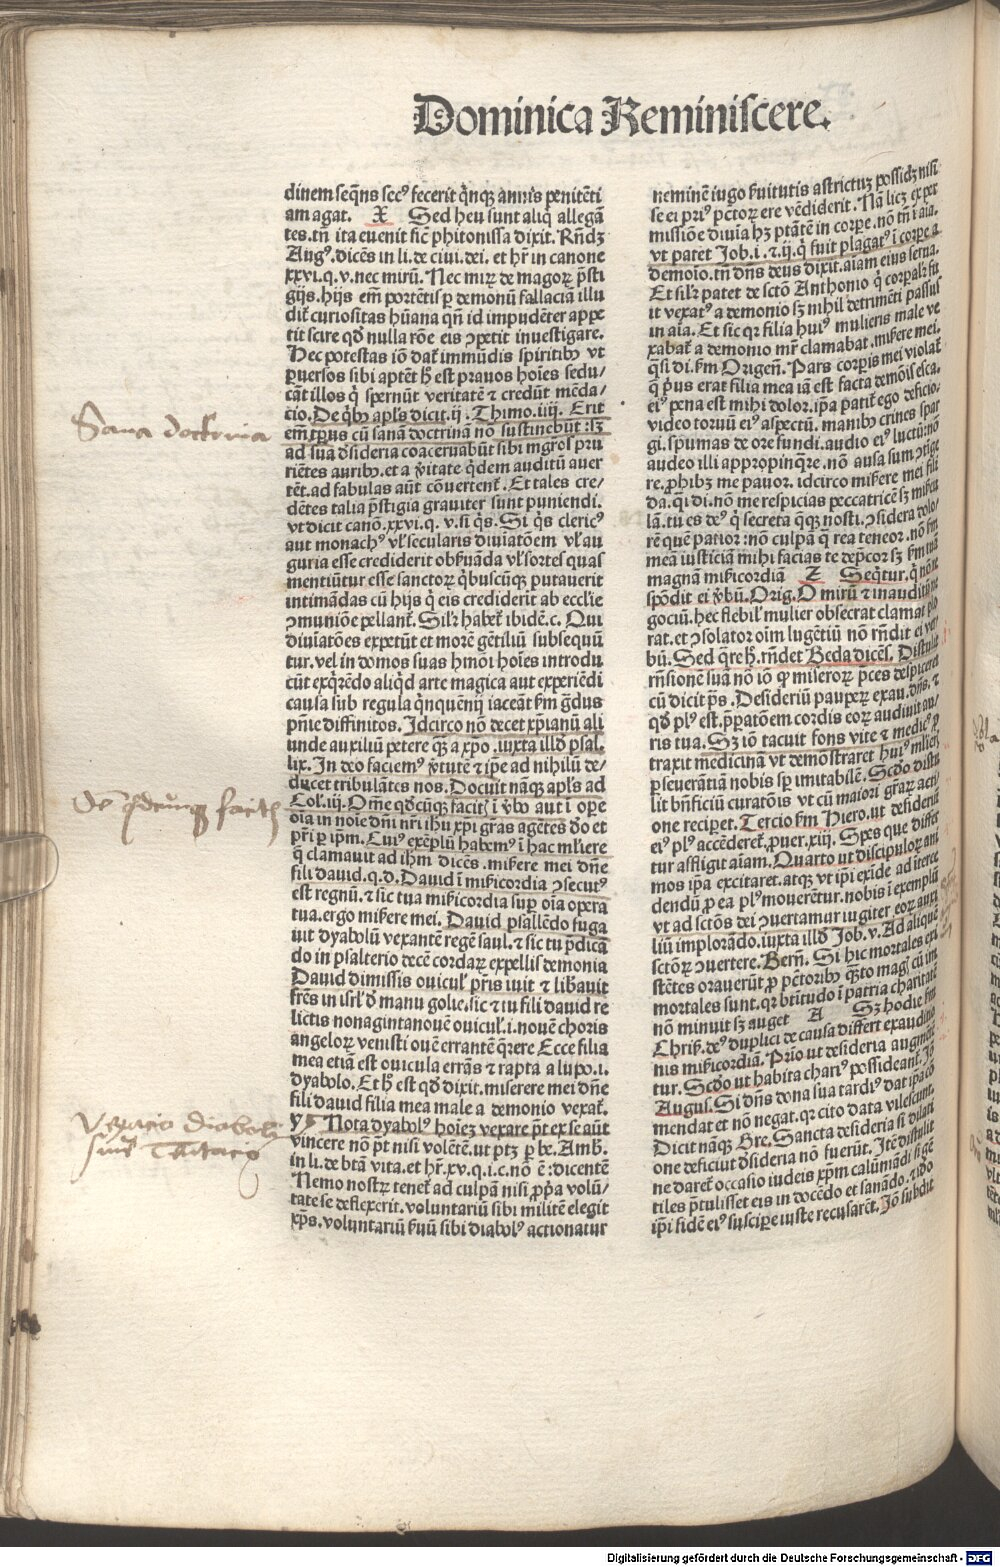 Dominica Reminiscere.
dinem seq̄ns secꝰ fecerit q̇nqꝫ annis penitēti
am agat. X Sed heu sunt aliq̄ allegā
tes. tñ ita euenit sic̄ phitonissa dixit. Rñdꝫ
Augꝰ. dicēs in li. de ciui. dei. et hr̄ in canone
xxvi. q. v. nec mirū. Nec mirꝫ de magoꝝ p̄sti
gijs. hijs em̄ portētis ꝑ demonū fallaciā illu
dit̄ curiositas hūana qñ id impudēter appe
tit scire qd̄ nulla rōe eis ꝯpetit inuestigare.
Hec potestas iō dat̄ immūdis spiritibꝰ vt
ꝑuersos sibi aptēt hͦ est prauos hoīes sedu/
cāt illos q̇ spernūt veritatē ⁊ credūt mēda/
cio. De q̇bꝰ apl̄s dicit. ij. Thimo. iiij. Erit
em̄ tꝑus cū sanā doctrinā nō sustinebūt : sꝫ
ad sua d̄sideria coaceruabūt sibi mgr̄os pru
riētes auribꝰ. et a v̄itate q̇dem auditū auer
tēt. ad fabulas aūt cōuertent̄. Et tales cre/
dētes talia p̄stigia grauiter sunt puniendi.
vt dicit canō. xxvi. q. v. si q̇s. Si q̇s clericꝰ
aut monachꝰ vl̄ secularis diuinatōem vl̄ au
guria esse crediderit obẜuāda vl̄ sortes quas
mentiūtur esse sanctoꝝ q̇buscūqꝫ putauerit
intimādas cū hijs q̇ eis crediderit ab eccl̄ie
ꝯmuniōe pellant̄. Sil̄r habet̄ ibidē. c. Qui
diuiatōes expetūt et morē gētiliū subsequū
tur. vel in domos suas hmōi hoīes introdu
cūt exq̇rēdo aliq̇d arte magica aut experiēdi
causa sub regula q̇nquenij iaceāt ẜm gͣdus
pn̄ie diffinitos. Idcirco nō decet xp̄ianū ali
unde auxiliū petere qͣꝫ a xp̄o. iuxta illd̄ psal.
lix. In deo faciemꝰ v̄tutē ⁊ ip̄e ad nihilū de/
ducet tribulātes nos. Docuit nāqꝫ apl̄s ad
Col. iij. Om̄e qd̄cūqꝫ facit̄ ī v̄bo aut ī oꝑe
oīa in noīe dn̄i nr̄i ihu xp̄i grās agētes do et
pr̄i ꝑ ip̄m. Cuiꝰ exēplū habemꝰ ī hac ml̄iere
q̄ clamauit ad ihm̄ dicēs. miẜere mei dn̄e
fili dauid. q. d. Dauid ī miẜicordia ꝯsecutꝰ
est regnū. ⁊ sic tua miẜicordia suꝑ oīa opera
tua. ergo miẜere mei. Dauid psallēdo fuga
uit dyabolū vexantē regē saul. ⁊ sic tu p̄dicā
do in psalterio decē cordaꝝ expellis demonia
Dauid dimissis ouicul̄ pr̄is iuit ⁊ libauit
fr̄es in isrl̄ d̄ manu golie. sic ⁊ tu fili dauid re
lictis nonagintanouē ouicul̄. i. nouē choris
angeloꝝ venisti ouē errantē q̄rere Ecce filia
mea etiā est ouicula errās ⁊ rapta a lupo. i.
dyabolo. Et hͦ est qd̄ dixit. miserere mei dn̄e
fili dauid filia mea male a demonio vexat̄.
y Nota dyabolꝰ hoīeꝫ vexare p̄t ex se aūt
vincere nō p̄t nisi volētē. ut ptꝫ ꝑ bͤe. Amb.
in li. de btā vita. et hr̄. xv. q. i. c. nō ē : dicentē
Nemo nostꝝ tenet̄ ad culpā nisi p̄pͥa volū/
tate se deflexerit. voluntariū sibi militē elegit
xp̄s. voluntariū ẜuū sibi diabolꝰ actionatur
neminē iugo ẜuitutis astrictuꝫ possidꝫ nisi
se ei priꝰ pctōꝝ ere vēdiderit. Nā licꝫ ex per
missiōe diuīa hꝫ ptātē in corꝑe. nō tñ ī aīa.
vt patet Job. i. ⁊. ij. q̇ fuit plagatꝰ ī corꝑe a
demoīo. tñ dn̄s deus dixit. aīam eius serua.
Et sil̄r patet de scto Anthonio q̇ corꝑalr̄ fu
it vexatꝰ a demonio sꝫ nihil detrimēti passus
in aīa. Et sic qꝛ filia huiꝰ mulieris male ve
xabat̄ a demonio mr̄ clamabat. miẜere mei.
q̄si di. ẜm Origen̄. Pars corꝑis mei violat̄
q̄ pͥus erat filia mea iā est facta demōis esca.
eiꝰ pena est mihi dolor. ip̄a patit̄ ego deficio.
video toruū eiꝰ aspectū. manibꝰ crines spar
gi. spumas de ore fundi. audio eiꝰ luctū : nō
audeo illi appropinq̄re. nō ausa sum ꝯtīge
re. ꝓhibꝫ me pauor. idcirco miẜere mei fili
da. q̄si di. nō me respicias peccatricē sꝫ miẜicͦ
lā. tu es deꝰ q̇ secreta q̄qꝫ nosti. ꝯsidera dolo/
rē quē patior : nō culpā q̄ rea teneor. nō ẜm
meā iusticiā mihi facias te dep̄cor sꝫ ẜm tuā
magnā miẜicordiā Z Seq̇tur. q̇ nō re
spōdit ei v̄bū. Orig. O mirū ⁊ inauditū ne
gociū. hec flebilꝰ mulier obsecrat clamat plo
rat. et ꝯsolator oīm lugētiū nō rn̄dit ei ver
bū. Sed q̄re hͦ. rn̄det Beda dicēs. Distulit
rn̄sionē suā nō iō qꝛ miseroꝝ p̄ces despiceret
cū dicit ps. Desideriū pauꝑeꝝ exau. dn̄s. ⁊
qd̄ plꝰ est. p̄patōem cordis eoꝝ audiuit au/
ris tua. Sꝫ iō tacuit fons vite ⁊ medicꝰ ꝓ
traxit medicinā vt demōstraret huiꝰ ml̄ieris
ꝑseuerātiā nobis sꝑ imitabilē. Scd̄o distu
lit bn̄ficiū curatōis vt cū maiori grāꝝ acti/
one reciꝑet. Tercio ẜm Hiero. ut desideriū
eiꝰ plꝰ accēderet̄. ꝓuer. xiij. Spes que differ
tur affligit aīam. Quarto ut discipuloꝝ ani
mos ip̄a excitaret. atqꝫ vt ipi exīde ad īterce
dendū ꝓ ea plꝰ mouerētur. nobis ī exemplū
vt ad sctōs dei ꝯuertamur iugiter eoꝝ auxi
liū implorādo. iuxta illd̄ Job. v. Ad aliquē
sctōꝝ ꝯuertere. Bern̄. Si hic mortales exi
stētes orauerūt ꝓ pctōribꝰ qͣꝫto magꝭ cū im
mortales sunt. qꝛ btitudo ī patria charitatē
nō minuit sꝫ auget A Sꝫ hodie ẜm
Chriẜ. deꝰ duplici de causa differt exaudītio
nis miẜicordiā. Prīo ut desideria augmētē
tur. Scd̄o ut habita chariꝰ possideant̄. Iō
Augus. Si dn̄s dona sua tardiꝰ dat ip̄a cō
mendat et nō negat. qꝛ cito data vilescunt.
Dicit nāqꝫ Gre. Sancta desideria si dilati
one deficiut d̄sideria nō fuerūt. Itē distulit
ne daret̄ occasio iudeis xp̄m calūmādi si gē
tiles p̄tulisset eis in docēdo et sanādo. ⁊ ido
ip̄i fidē eiꝰ susciꝑe iuste recusarēt. Iō subdit
Sana doctrina
De qd̄cunqꝫ facitꝭ
Vexatio diaboli
siue Tētatio
Digitalisierung gefördert durch die Deutsche Forschungsgemeinschaft - DFG